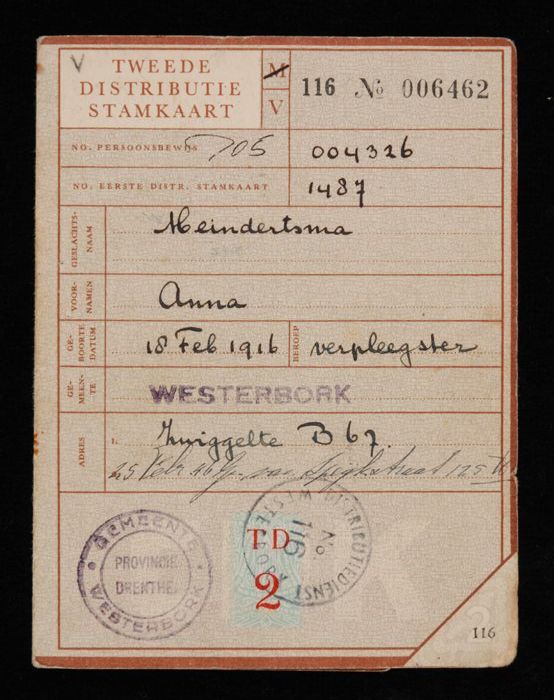 V
TWEEDE
DISTRIBUTIE
STAMKAART
M
V
116 No 006462
NO. PERSOONSBEWIJS 004326
NO. EERSTE DISTR. STAMKAART 1487
GESLACHTS-
NAAM
Meindertsma
VOOR-
NAMEN
Anna
GE-
BOORTE
DATUM
18 Feb 1916
BEROEP
verpleegster
GE-
MEEN-
TE
WESTERBORK
ADRES
Zwiggelte B 67.
25 Febr 46
GEMEENTE
PROVINCIE
DRENTHE
WESTERBORK
TD
2
DISTRIBUTIEDIENST
WESTERBORK
No
116
116